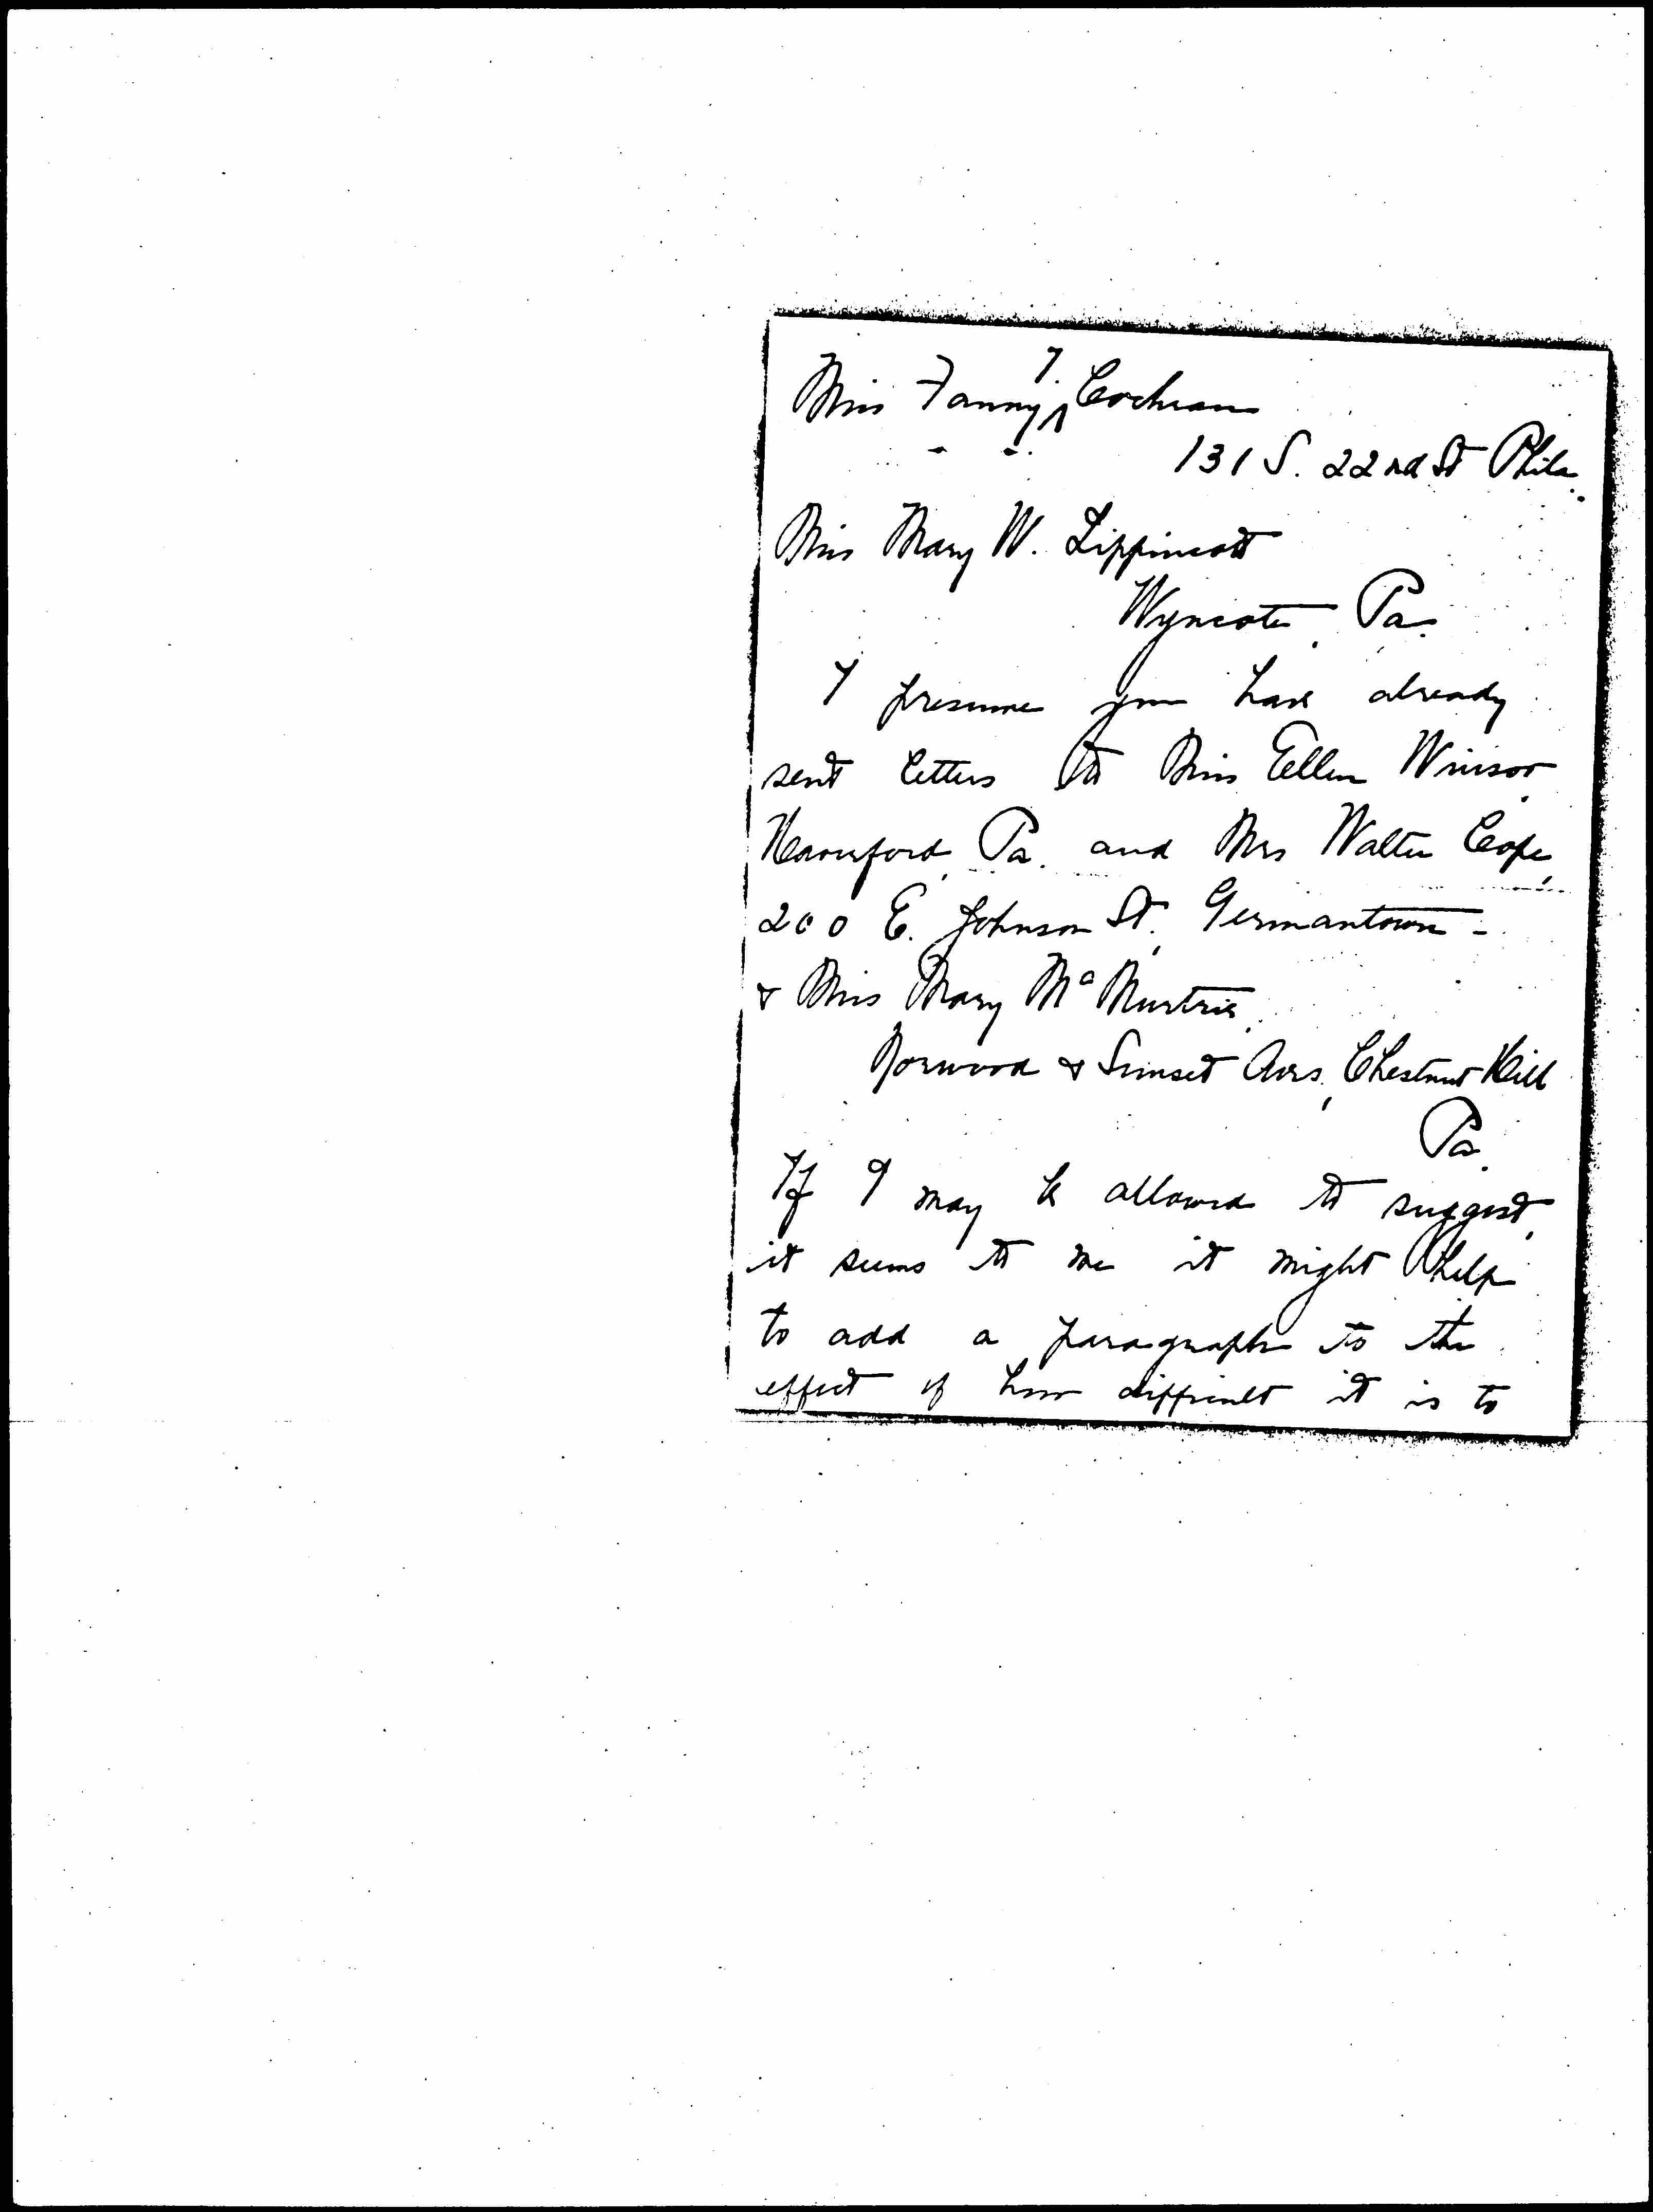 Miss Fanny T. Cochran
131 S. 22nd St Phila.
Miss Mary W. Lippincott
Wyncote, Pa.
I presume you have already
sent letters to Miss Ellen Winsor,
Haverford, Pa. and Mrs Walter Cope,
200 E. Johnson St., Germantown -
& Miss Mary McMurtrie,
Norwood & Sunset Aves., Chestnut Hill
Pa.
If I may be allowed to suggest,
it seems to me it might help
to add a paragraph to the
effect of how difficult it is to